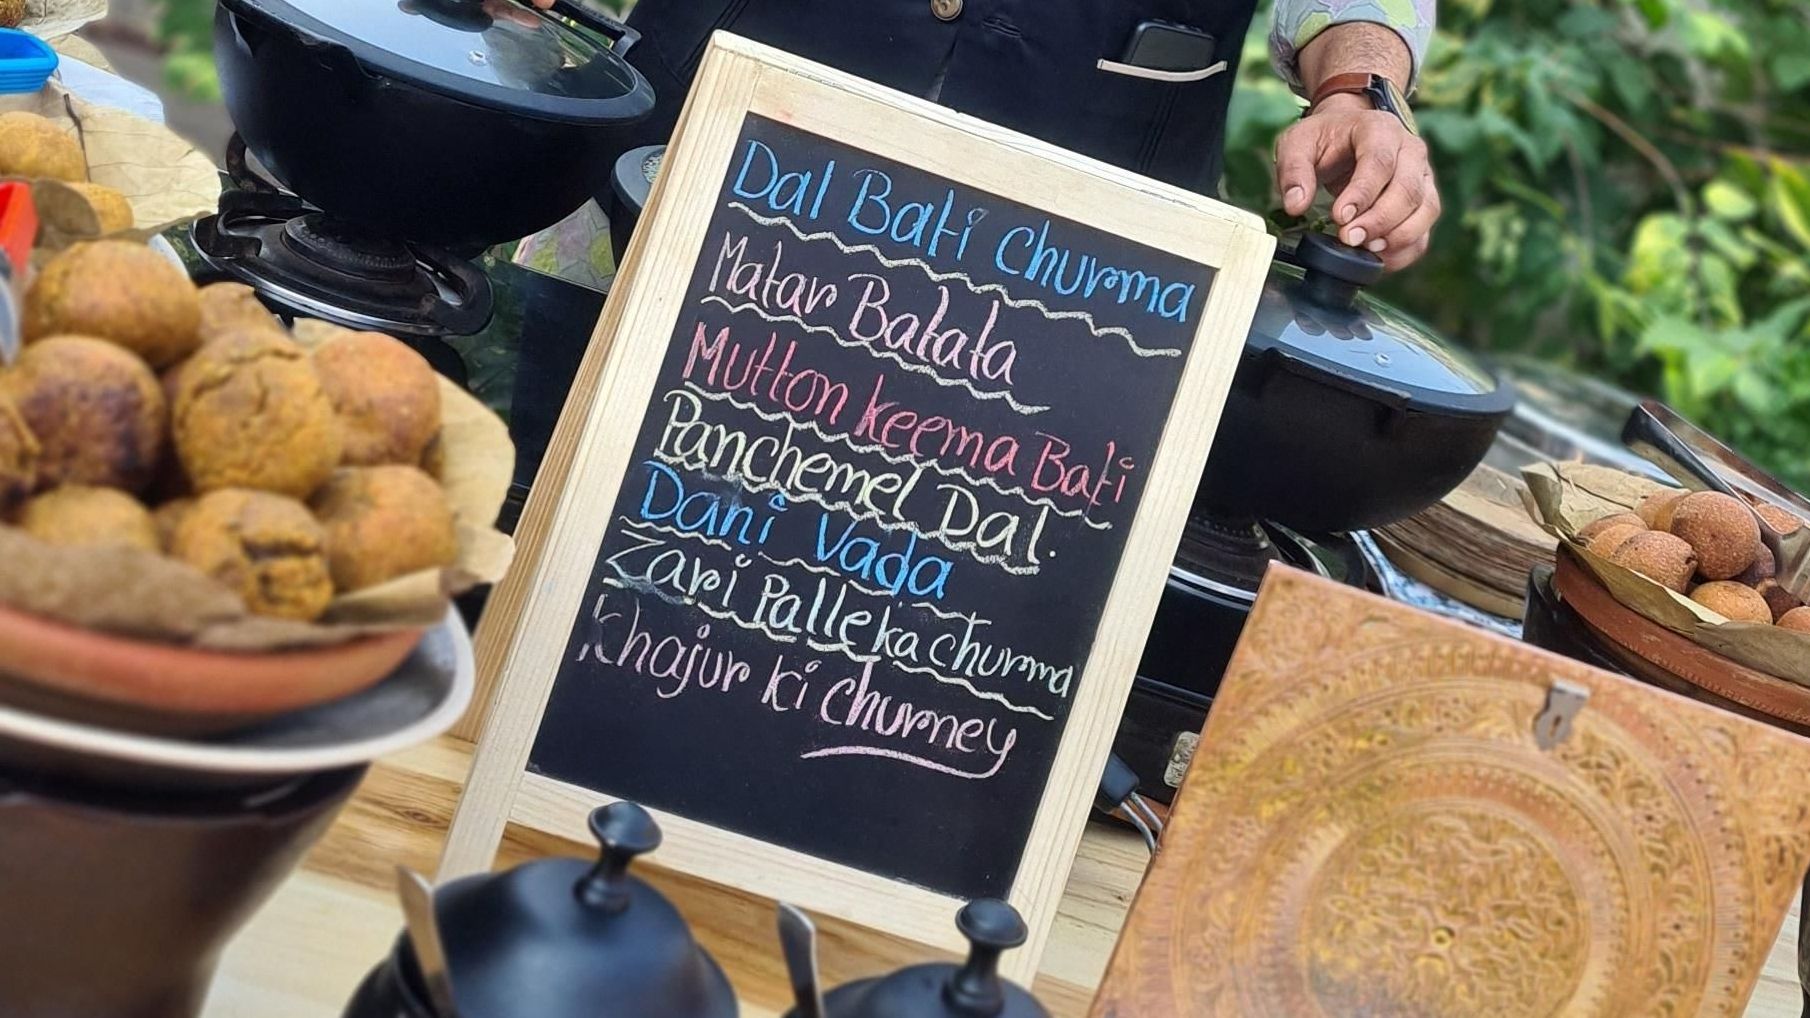 Dal Bati Churma
Matar Batata
Mutton keema Bati
Panchemel Dal.
Dahi Vada
Zari Palle ka churma
Khajur ki churney